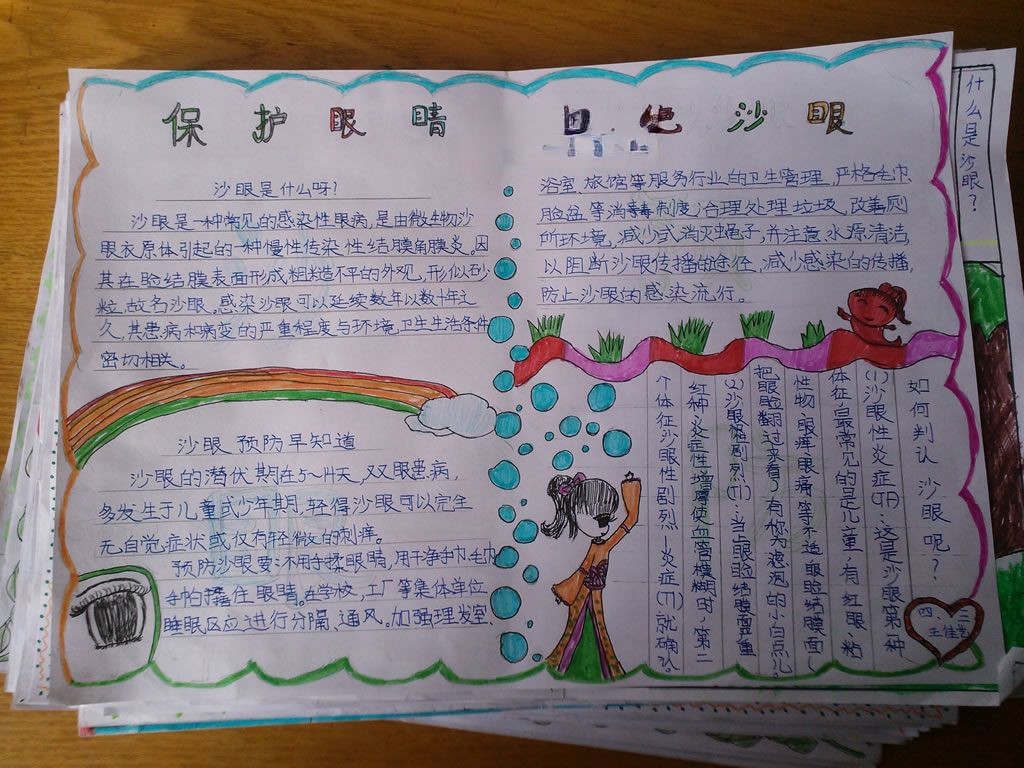 保护眼睛 沙眼
沙眼是什么呀?
沙眼是一种常见的感染性眼病,是由微生物沙
眼衣原体引起的一种慢性传染性结膜角膜炎。因
其在睑结膜表面形成粗糙不平的外观,形似砂
粒,故名沙眼。感染沙眼可以延续数年以数十年之
久,其患病和病变的严重程度与环境卫生生活条件
密切相关。
沙眼预防早知道
沙眼的潜伏期在5~14天,双眼患病,
多发生于儿童或少年期,轻得沙眼可以完全
无自觉症状或仅有轻微的刺痒。
预防沙眼要不用手揉眼睛,用干净手巾毛巾
手怕擦住眼睛。在学校,工厂等集体单位
睡眠区应进行分隔、通风。加强理发室、
浴室、旅馆等服务行业的卫生管理,严格毛巾
脸盆等消毒制度,合理处理垃圾,改善厕
所环境,减少或消灭蝇子,并注意水源清洁,
以阻断沙眼传播的途径,减少感染的传播,
防止沙眼的感染流行。
如何判认沙眼呢?
(1)沙眼性炎症(TF)这是沙眼第一种
体征最常见的是儿童,有红眼、粘
性物、眼痒眼痛等不适眼睑结膜面
把眼睑翻过来看,有称为滤泡的小白点儿。
(2)沙眼性剧烈(TI):当上眼睑结膜严重
红肿炎症性增厚使血管模糊时,第二
个体征沙眼性剧烈炎症(TI)就确认。
四、三
王佳莹
什么是沙眼?